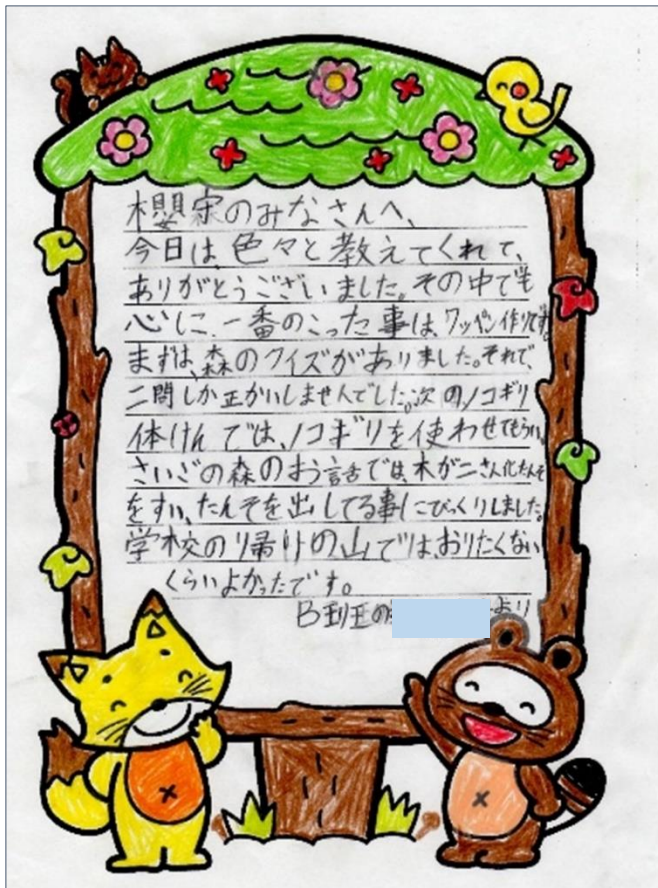 櫻家のみなさんへ、
今日は、色々と教えてくれて、
ありがとうございました。その中でも
心に、一番のこった事は、ワッペン作りです。
まずは、森のクイズがありました。それで、
二問しか正かいしませんでした。次の、ノコギリ
体けんでは、ノコギリを使わせてもらい、
さいごの森のお話では、木が二さん化たんそ
をすい、たんそを出してる事にびっくりしました。
学校の帰りの山では、おりたくない
くらいよかったです。
B班の
より